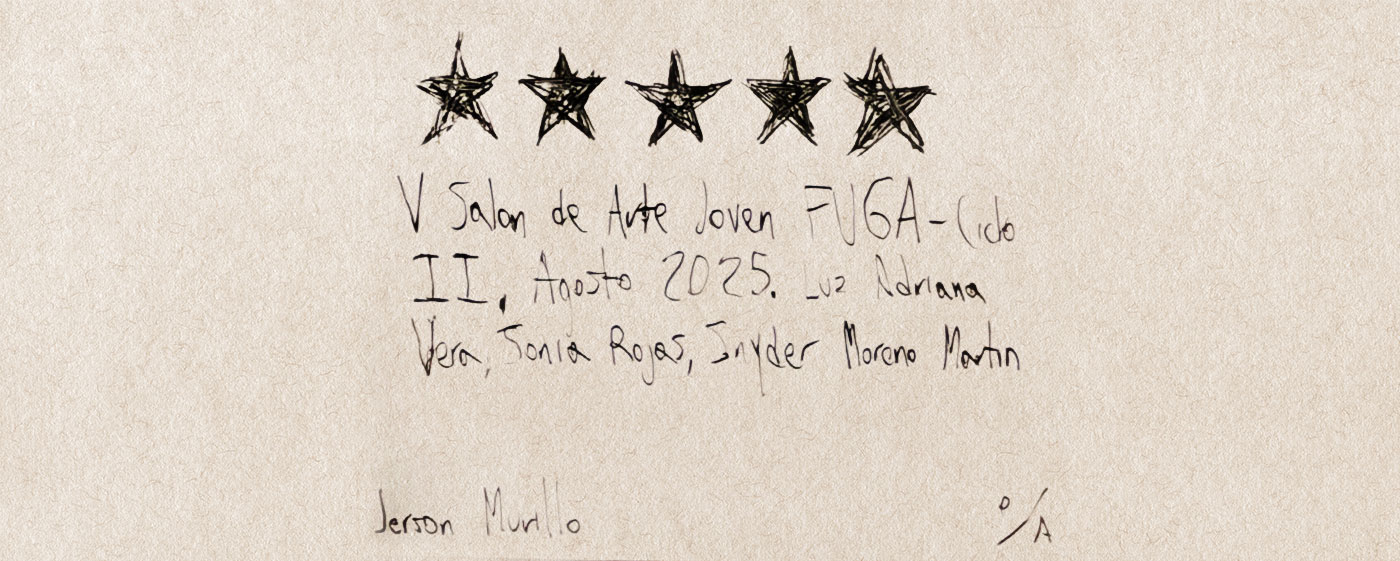 V Salon de Arte Joven FUGA-Ciclo
II, Agosto 2025. Luz Adriana
Vera, Sonia Rojas, Snyder Moreno Martin
Jerson Murillo